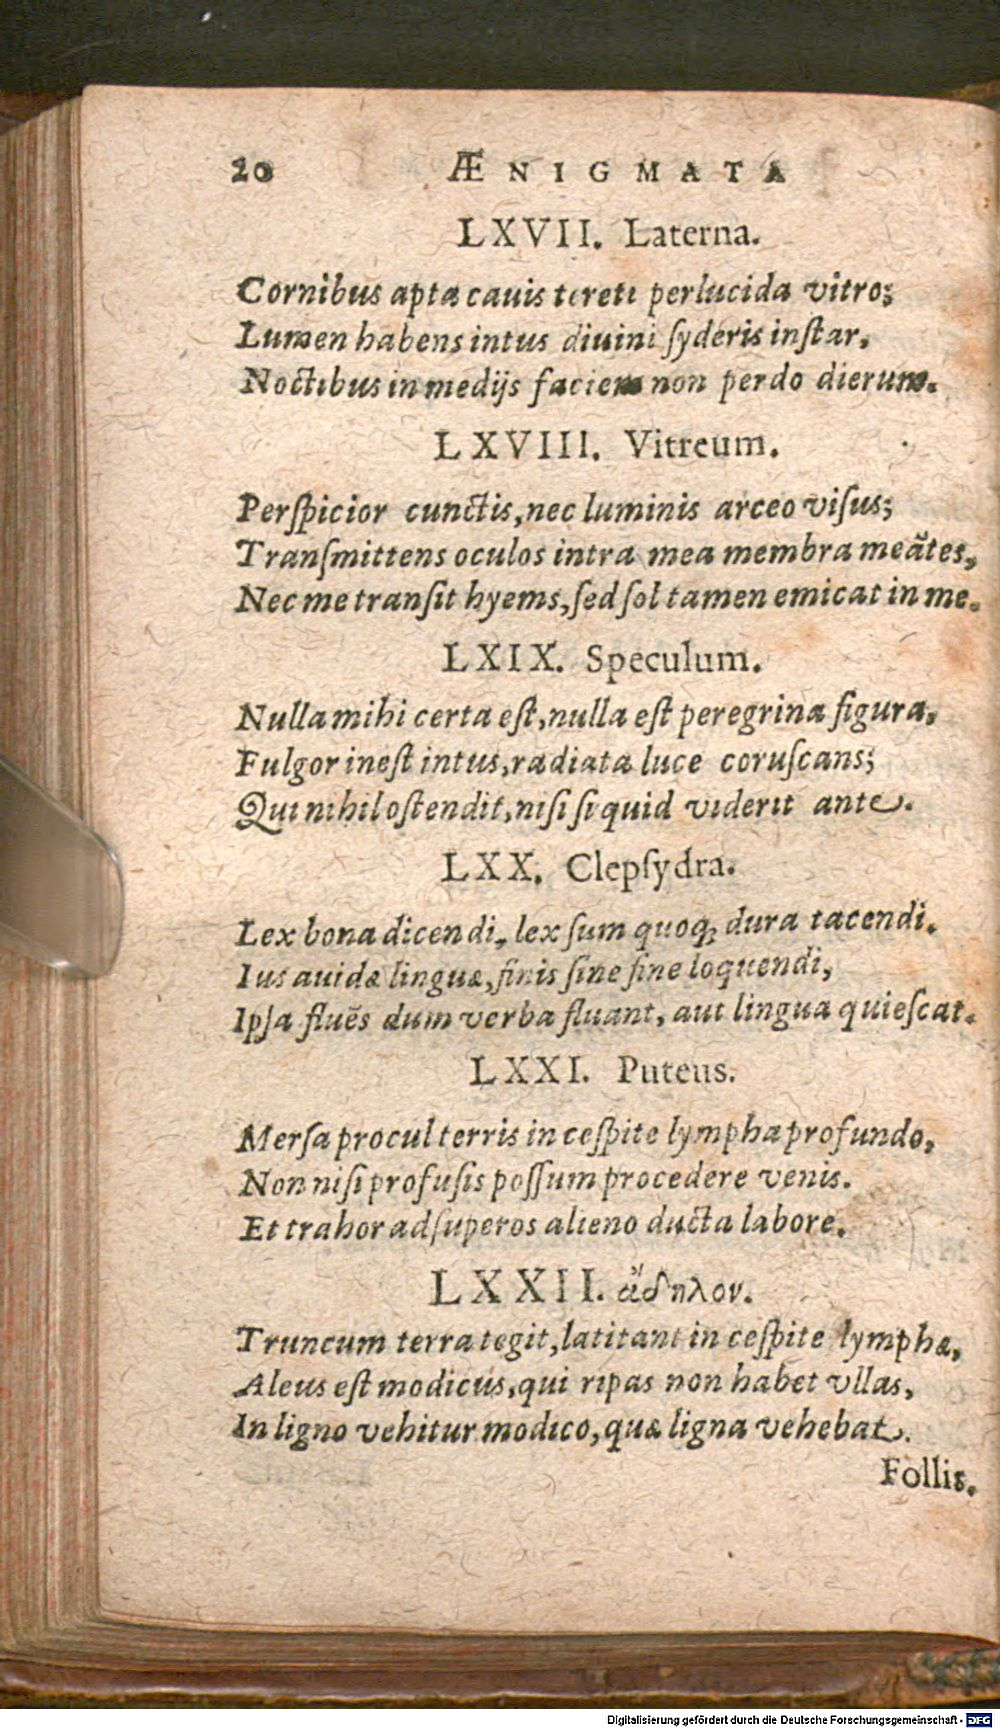 20 ÆNIGMATA
LXVII. Laterna.
Cornibus apta cauis tereti perlucida vitro;
Lumen habens intus diuini ſyderis inſtar,
Noctibus in medijs faciem non perdo dierum.
LXVIII. Vitreum.
Perſpicior cunctis, nec luminis arceo viſus;
Tranſmittens oculos intra mea membra meātes,
Nec me tranſit hyems, ſed ſol tamen emicat in me.
LXIX. Speculum.
Nulla mihi certa eſt, nulla eſt peregrina figura,
Fulgor ineſt intus, radiata luce coruſcans;
Qui nihil oſtendit, niſi ſi quid viderit ante.
LXX. Clepſydra.
Lex bona dicendi, lex ſum quoq; dura tacendi.
Ius auidæ linguæ, finis ſine fine loquendi,
Ipſa fluēs dum verba fluant, aut lingua quieſcat.
LXXI. Puteus.
Merſa procul terris in ceſpite lympha profundo,
Non niſi profuſis poſſum procedere venis.
Et trahor ad ſuperos alieno ducta labore.
LXXII. ἄδηλον.
Truncum terra tegit, latitant in ceſpite lymphæ,
Aleus eſt modicus, qui ripas non habet vllas,
In ligno vehitur modico, quæ ligna vehebat.
Follis.
Digitalisierung gefördert durch die Deutsche Forschungsgemeinschaft - DFG